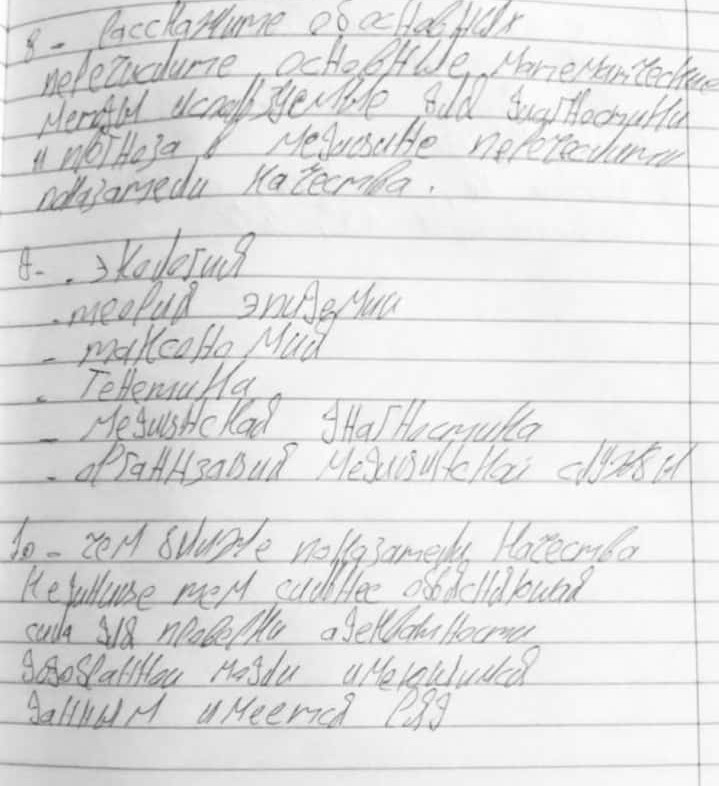 8 - Расскажите об основных
перечислите основные математические
методы используемые для диагностики
и прогноза в медицине перечислите
показатели качества.
9- . экология
. теория эпидемии
- таксономия
. Генетика
- медицинская диагностика
- организация медицинской службы
10 - чем ближе показатели качества
к единице тем сильнее объясняющая
сила для проверки адекватности
имеющимся
данным имеется ряд